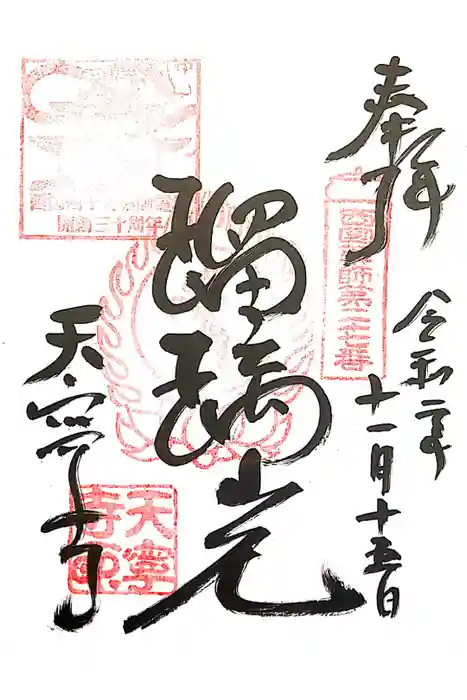 奉拝
西國薬師第二十七番
令和二年
十一月十五日
瑠璃光
開創三十周年
天寧寺
天寧
寺印